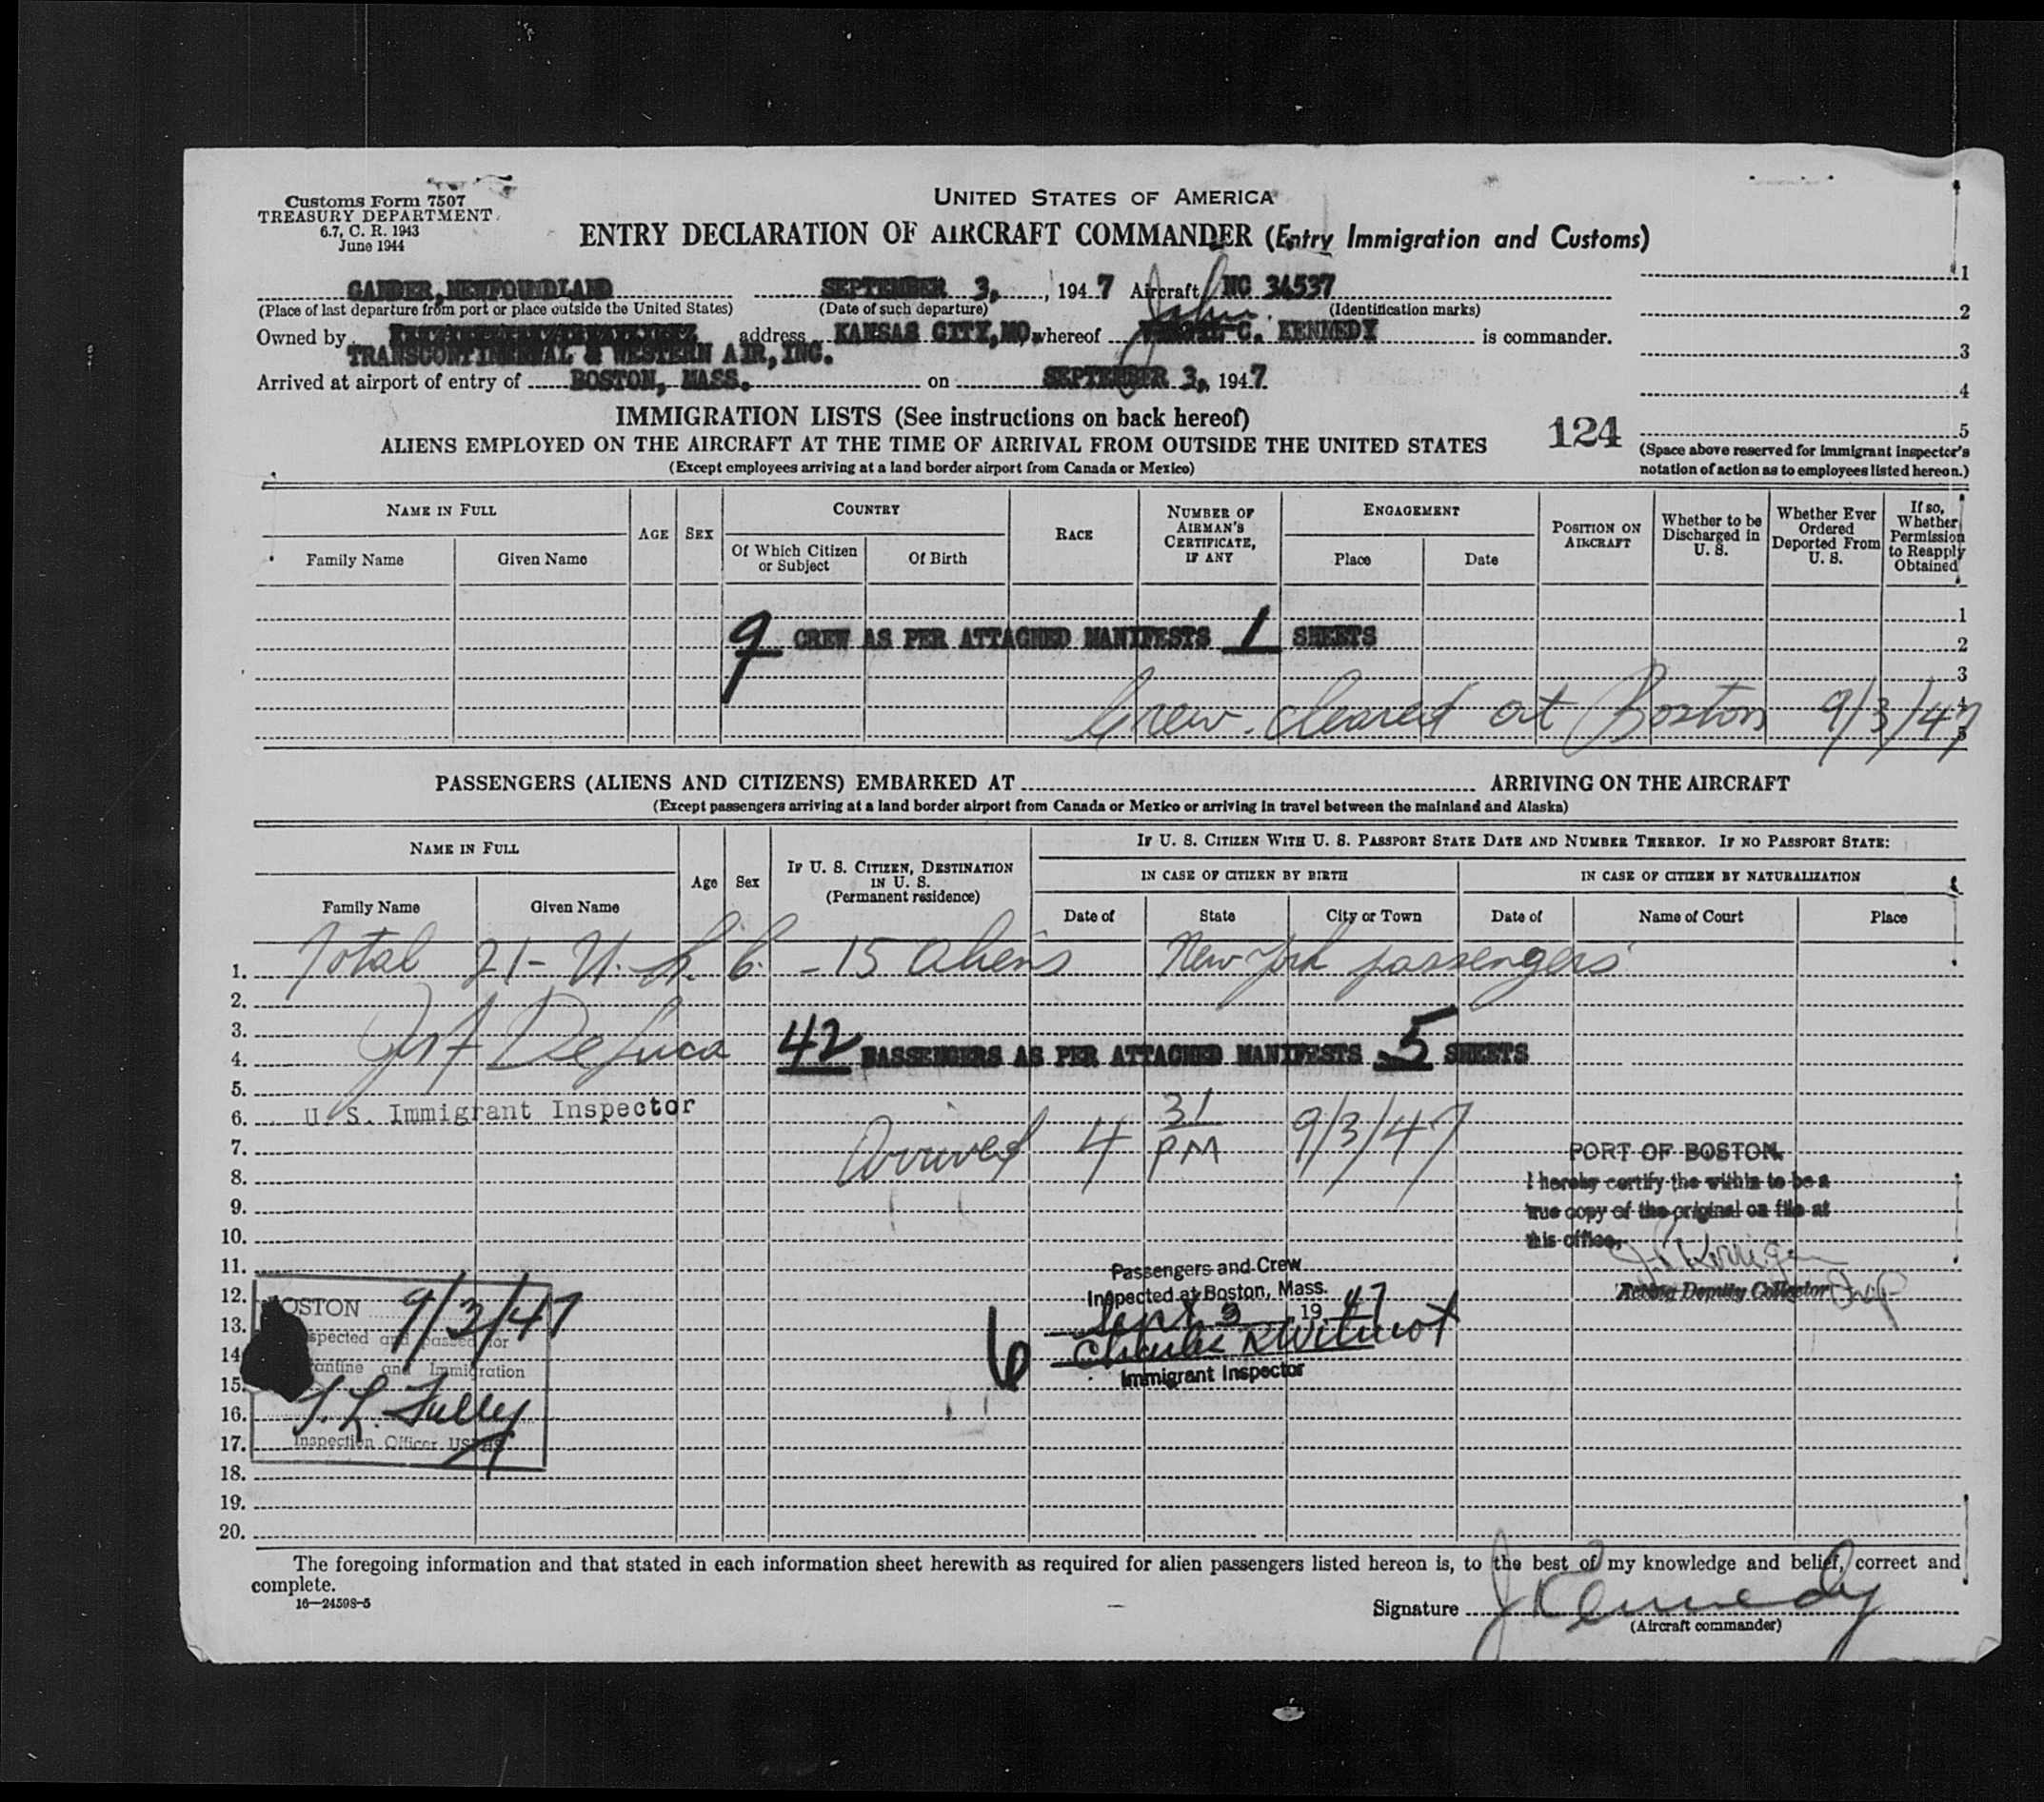 Customs Form 7507
TREASURY DEPARTMENT
6.7, C. R. 1943
June 1944
UNITED STATES OF AMERICA
ENTRY DECLARATION OF AIRCRAFT COMMANDER (Entry Immigration and Customs)
GANDER, NEWFOUNDLAND SEPTEMBER 3, , 1947 Aircraft NC 34537
(Place of last departure from port or place outside the United States) (Date of such departure) (Identification marks)
John
Owned by address KANSAS CITY, MO. whereof C. KENNEDY is commander.
TRANSCONTINENTAL & WESTERN AIR, INC.
Arrived at airport of entry of BOSTON, MASS. on SEPTEMBER 3, 1947.
1
2
3
4
5
(Space above reserved for Immigrant Inspector's notation of action as to employees listed hereon.)
IMMIGRATION LISTS (See instructions on back hereof)
124
ALIENS EMPLOYED ON THE AIRCRAFT AT THE TIME OF ARRIVAL FROM OUTSIDE THE UNITED STATES
(Except employees arriving at a land border airport from Canada or Mexico)
NAME IN FULL AGE SEX COUNTRY RACE NUMBER OF AIRMAN'S CERTIFICATE, IF ANY ENGAGEMENT POSITION ON AIRCRAFT Whether to be Discharged in U. S. Whether Ever Ordered Deported From U. S. If so, Whether Permission to Reapply Obtained
Family Name Given Name Of Which Citizen or Subject Of Birth Place Date
1
9 CREW AS PER ATTACHED MANIFESTS 1 SHEETS 2
3
4
Crew cleared at Boston 9/3/47
5
PASSENGERS (ALIENS AND CITIZENS) EMBARKED AT ARRIVING ON THE AIRCRAFT
(Except passengers arriving at a land border airport from Canada or Mexico or arriving in travel between the mainland and Alaska)
NAME IN FULL Age Sex IF U. S. CITIZEN, DESTINATION IN U. S. (Permanent residence) IF U. S. CITIZEN WITH U. S. PASSPORT STATE DATE AND NUMBER THEREOF. IF NO PASSPORT STATE:
IN CASE OF CITIZEN BY BIRTH IN CASE OF CITIZEN BY NATURALIZATION
Family Name Given Name Date of State City or Town Date of Name of Court Place
1. Total 21- U. S. C. - 15 Aliens New York passengers
2.
3.
4. DeLuca 42 PASSENGERS AS PER ATTACHED MANIFESTS 5 SHEETS
5.
6. U. S. Immigrant Inspector
7. Arrived 4 31 PM 9/3/47 PORT OF BOSTON.
8. I hereby certify the within to be a
9. true copy of the original on file at
10. this office.
11. Passengers and Crew
12. BOSTON 9/3/47 Inspected at Boston, Mass. Acting Deputy Collector
13. Inspected and passed for Sept 3 , 19 47
14. Quarantine and Immigration 6 Charles R Wilmot
15. Immigrant Inspector
16. T. L. Tully
17. Inspection Officer USPHS
18.
19.
20.
The foregoing information and that stated in each information sheet herewith as required for alien passengers listed hereon is, to the best of my knowledge and belief, correct and
complete.
16—24598-5
Signature J Kennedy
(Aircraft commander)